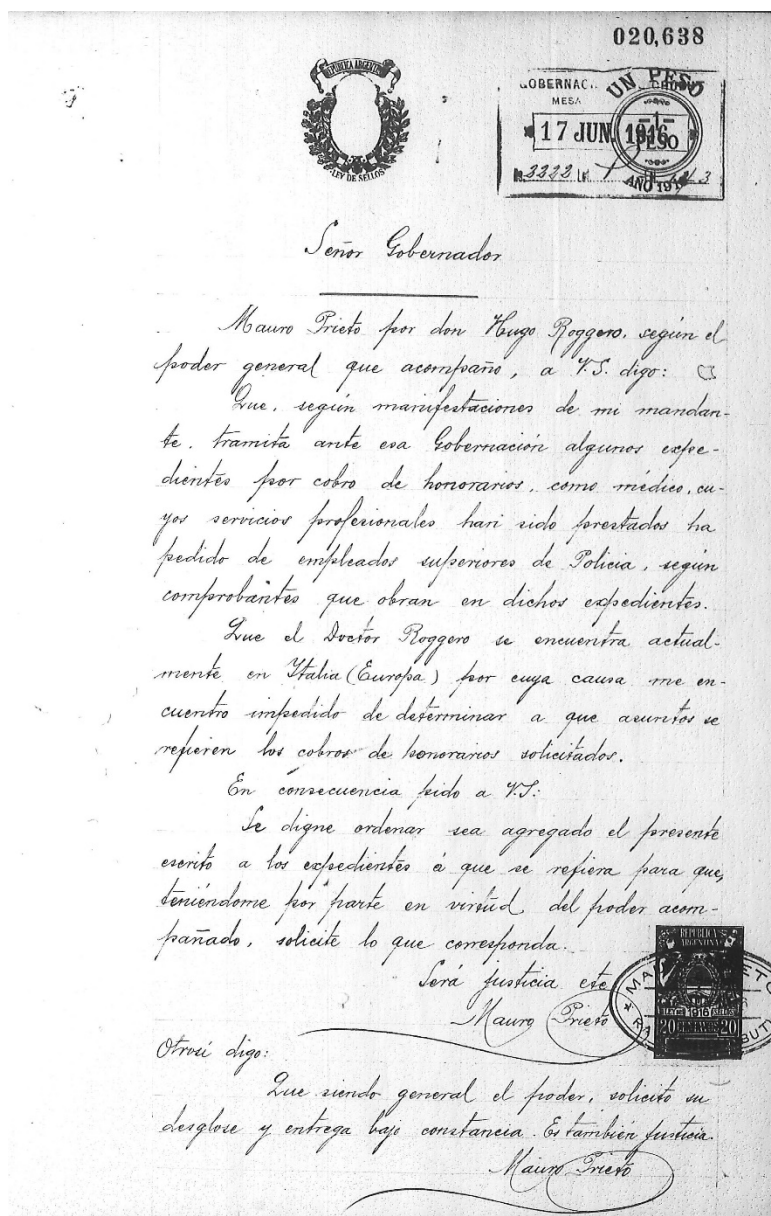 020,638
REPUBLICA ARGENTINA
LEY DE SELLOS
GOBERNAC
MESA
17 JUN 1916
UN PESO
1
PESO
AÑO 191
3222
Señor Gobernador
Mauro Prieto por don Hugo Roggero, según el
poder general que acompaño, a V.S. digo:
Que, según manifestaciones de mi mandan-
te, tramita ante esa Gobernación algunos expe-
dientes por cobro de honorarios, como médico, cu-
yos servicios profesionales han sido prestados ha
pedido de empleados superiores de Policia, según
comprobantes que obran en dichos expedientes.
Que el Doctor Roggero se encuentra actual-
mente en Italia (Europa) por cuya causa me en-
cuentro impedido de determinar a que asuntos se
refieren los cobros de honorarios solicitados.
En consecuencia pido a V.S:
Se digne ordenar sea agregado el presente
escrito a los expedientes á que se refiera para que,
teniéndome por parte en virtud del poder acom-
pañado, solicite lo que corresponda.
Será justicia etc
Mauro Prieto
REPUBLICA
ARGENTINA
LEY DE 1916 SELLOS
20 CENTAVOS 20
Otrosí digo:
Que siendo general el poder, solicito su
desglose y entrega bajo constancia. Es también justicia.
Mauro Prieto